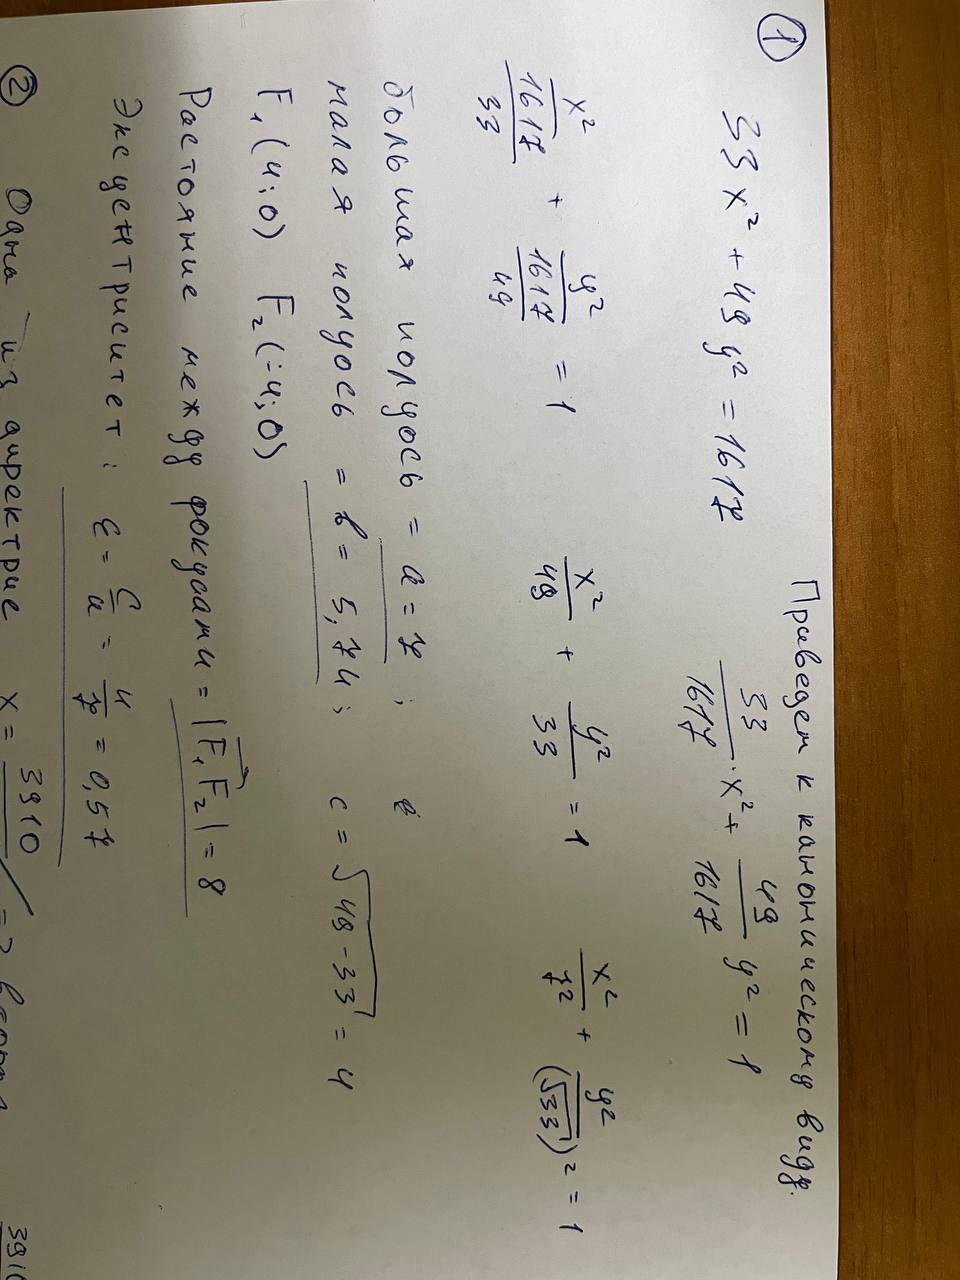 ① 33x² + 49y² = 1617
Приведем к каноническому виду.
33/1617 · x² + 49/1617 y² = 1
x²/(1617/33) + y²/(1617/49) = 1   x²/49 + y²/33 = 1   x²/7² + y²/(√33)² = 1
большая полуось = a = 7;
малая полуось = b = 5,74;   c = √49-33 = 4
F₁(4;0) F₂(-4;0)
Растояние между фокусами = |F₁F₂| = 8
Эксцентриситет: ε = c/a = 4/7 = 0,57
② Одна из директрис x =